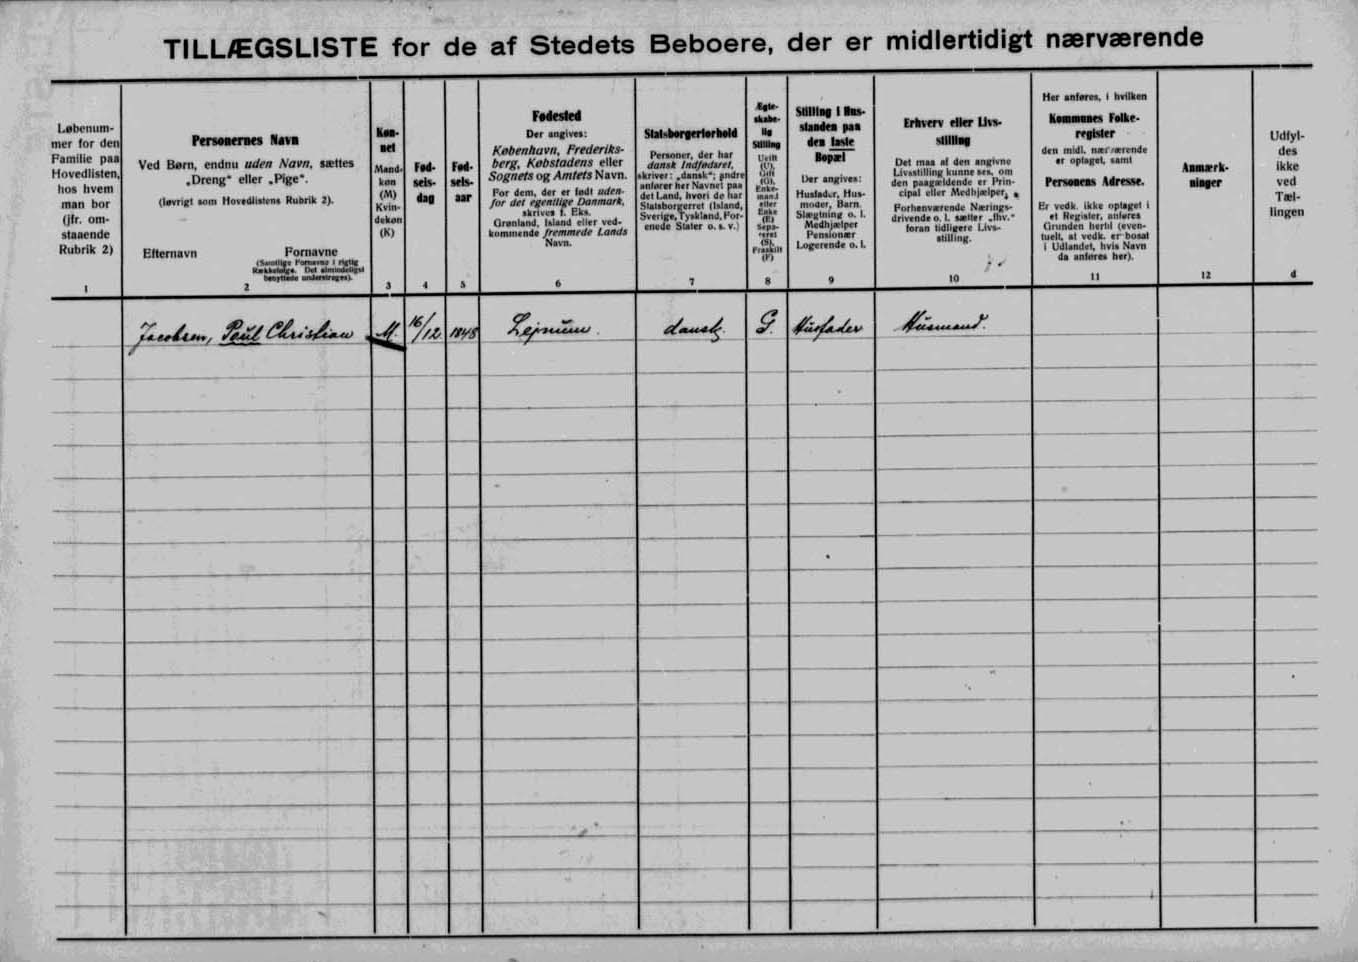 TILLÆGSLISTE for de af Stedets Beboere, der er midlertidigt nærværende
Løbenum-
mer for den
Familie paa
Hovedlisten,
hos hvem
man bor
(jfr. om-
staaende
Rubrik 2)
1
Personernes Navn
Ved Børn, endnu uden Navn, sættes
„Dreng“ eller „Pige“.
(Iøvrigt som Hovedlistens Rubrik 2).
Efternavn
Fornavne
(Samtlige Fornavne i rigtig
Rækkefølge. Det almindeligst
benyttede understreges).
2
Køn-
net
Mand-
køn
(M)
Kvin-
dekøn
(K)
3
Fød-
sels-
dag
4
Fød-
sels-
aar
5
Fødested
Der angives:
København, Frederiks-
berg, Købstadens eller
Sognets og Amtets Navn.
For dem, der er født uden-
for det egentlige Danmark,
skrives f. Eks.
Grønland, Island eller ved-
kommende fremmede Lands
Navn.
6
Statsborgerforhold
Personer, der har
dansk Indfødsret,
skriver: „dansk“; andre
anfører her Navnet paa
det Land, hvori de har
Statsborgerret (Island,
Sverige, Tyskland, For-
enede Stater o. s. v.)
7
Ægte-
skabe-
lig
Stilling
Ugift
(U),
Gift
(G),
Enke-
mand
eller
Enke
(E)
Sepa-
reret
(S),
Fraskilt
(F)
8
Stilling i Hus-
standen paa
den faste
Bopæl
Der angives:
Husfader, Hus-
moder, Barn,
Slægtning o. l.
Medhjælper
Pensionær
Logerende o. l.
9
Erhverv eller Livs-
stilling
Det maa af den angivne
Livsstilling kunne ses, om
den paagældende er Prin-
cipal eller Medhjælper.
Forhenværende Nærings-
drivende o. l. sætter „fhv.“
foran tidligere Livs-
stilling.
10
Her anføres, i hvilken
Kommunes Folke-
register
den midl. nærværende
er optaget, samt
Personens Adresse.
Er vedk. ikke optaget i
et Register, anføres
Grunden hertil (even-
tuelt, at vedk. er bosat
i Udlandet, hvis Navn
da anføres her).
11
Anmærk-
ninger
12
Udfyl-
des
ikke
ved
Tæl-
lingen
d
Jacobsen, Poul Christian M. 16/12 1848 Lejnum. dansk. G. Husfader Husmand.